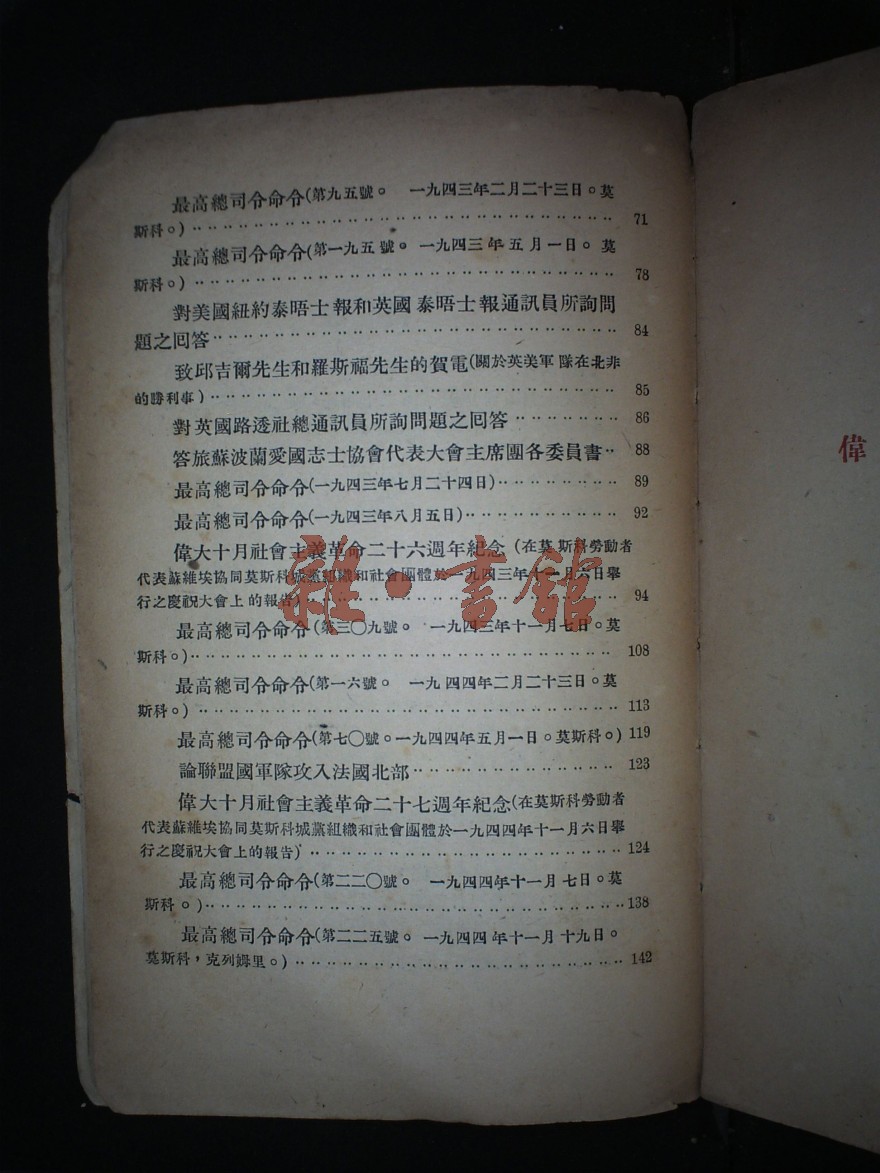 最高總司令命令(第九五號。 一九四三年二月二十三日。莫
斯科。)‥‥‥‥‥‥‥‥‥‥‥‥‥‥‥‥ 71
最高總司令命令(第一九五號。 一九四三年五月一日。 莫
斯科。)‥‥‥‥‥‥‥‥‥‥‥‥‥‥‥‥ 78
對美國紐約泰晤士報和英國泰晤士報通訊員所詢問
題之回答‥‥‥‥‥‥‥‥‥‥‥‥‥‥‥ 84
致邱吉爾先生和羅斯福先生的賀電(關於英美軍隊在北非
的勝利事)‥‥‥‥‥‥‥‥‥‥‥‥‥‥‥ 85
對英國路透社總通訊員所詢問題之回答‥‥‥‥‥ 86
答旅蘇波蘭愛國志士協會代表大會主席團各委員書‥ 88
最高總司令命令(一九四三年七月二十四日)‥‥‥‥‥ 89
最高總司令命令(一九四三年八月五日)‥‥‥‥‥‥ 92
偉大十月社會主義革命二十六週年紀念(在莫斯科勞動者
代表蘇維埃協同莫斯科城黨組織和社會團體於一九四三年十一月六日舉
行之慶祝大會上的報告)‥‥‥‥‥‥‥‥‥‥‥ 94
最高總司令命令(第三〇九號。 一九四三年十一月七日。莫
斯科。)‥‥‥‥‥‥‥‥‥‥‥‥‥‥‥‥ 108
最高總司令命令(第一六號。 一九四四年二月二十三日。莫
斯科。)‥‥‥‥‥‥‥‥‥‥‥‥‥‥‥‥ 113
最高總司令命令(第七〇號。一九四四年五月一日。莫斯科。) 119
論聯盟國軍隊攻入法國北部‥‥‥‥‥‥‥‥‥ 123
偉大十月社會主義革命二十七週年紀念(在莫斯科勞動者
代表蘇維埃協同莫斯科城黨組織和社會團體於一九四四年十一月六日舉
行之慶祝大會上的報告)‥‥‥‥‥‥‥‥‥‥‥ 124
最高總司令命令(第二二〇號。 一九四四年十一月七日。莫
斯科。)‥‥‥‥‥‥‥‥‥‥‥‥‥‥‥‥138
最高總司令命令(第二二五號。 一九四四年十一月十九日。
莫斯科,克列姆里。)‥‥‥‥‥‥‥‥‥‥‥‥ 142
偉
雜·書館